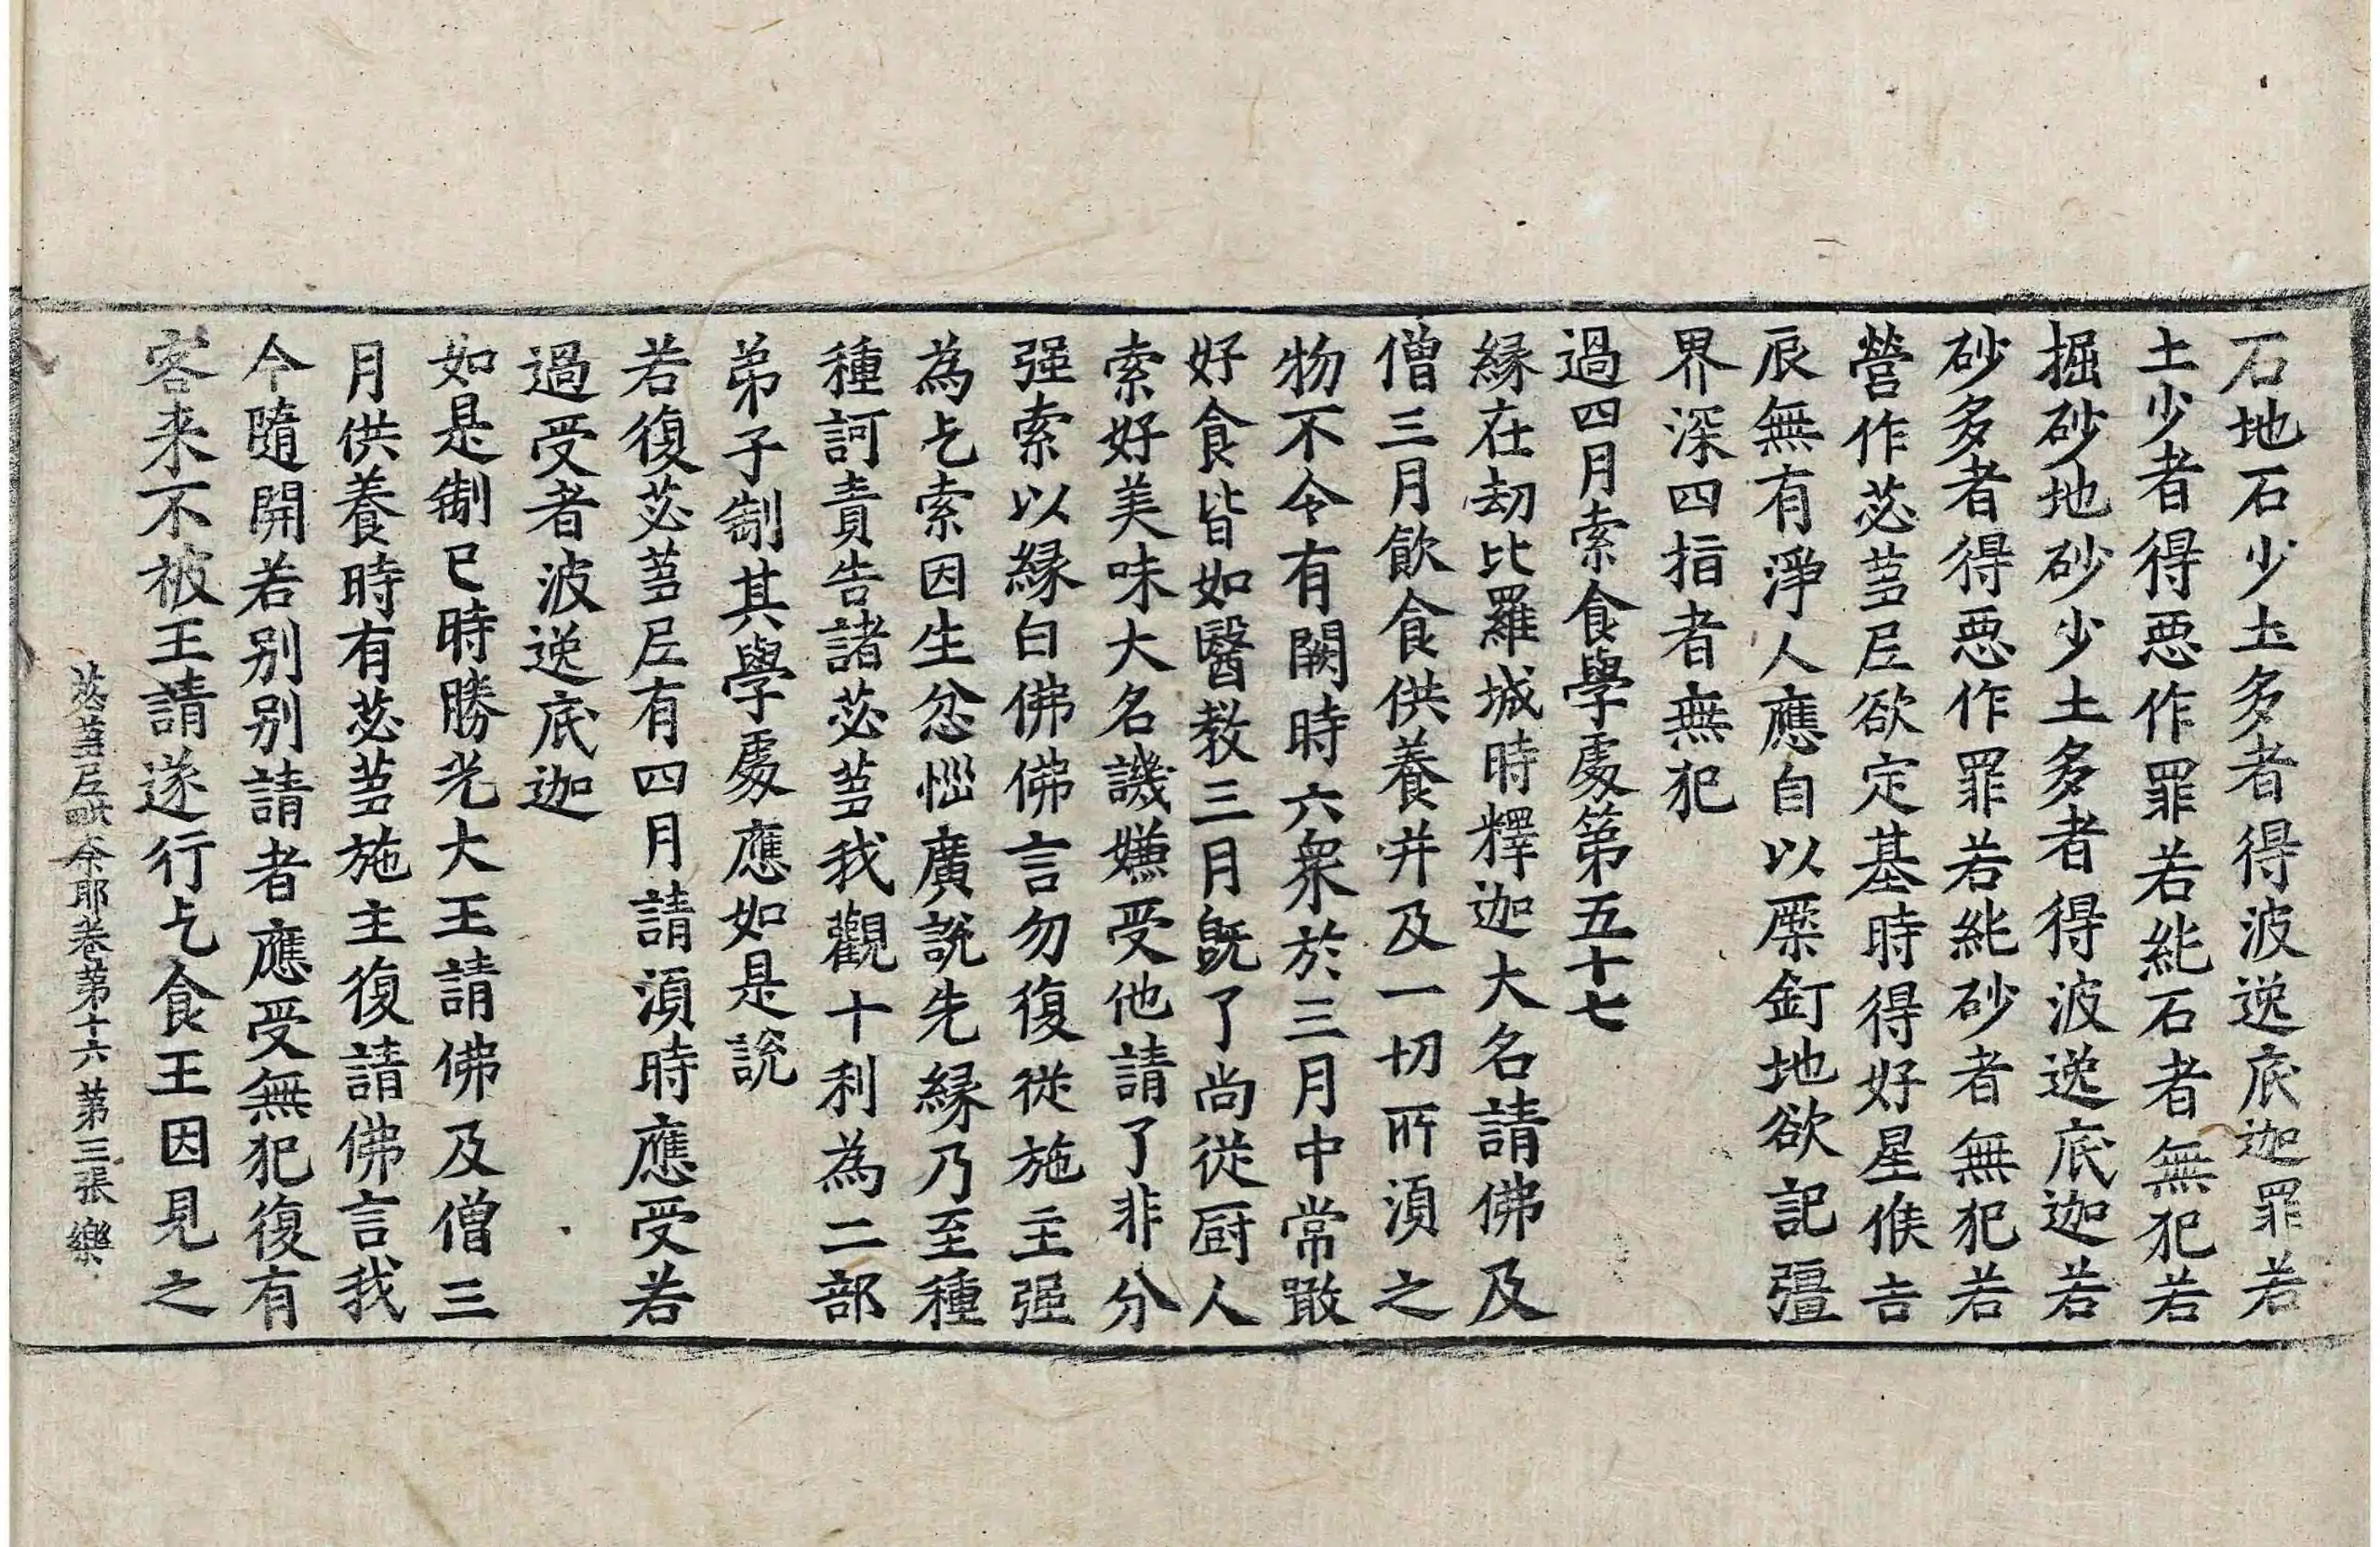 石地石少土多者得波逸底迦罪若
土少者得惡作罪若純石者無犯若
掘砂地砂少土多者得波逸底迦若
砂多者得惡作罪若純砂者無犯若
營作苾芻尼欲定基時得好星候吉
辰無有淨人應自以橛釘地欲記彊
界深四指者無犯
過四月索食學處第五十七
緣在劫比羅城時釋迦大名請佛及
僧三月飲食供養并及一切所須之
物不令有闕時六衆於三月中常噉
好食皆如醫教三月既了尚從厨人
索好美味大名譏嫌受他請了非分
强索以緣白佛佛言勿復從施主强
為乞索因生忿惱廣說先緣乃至種
種訶責告諸苾芻我觀十利為二部
弟子制其學處應如是說
若復苾芻尼有四月請須時應受若
過受者波逸底迦
如是制已時勝光大王請佛及僧三
月供養時有苾芻施主復請佛言我
今隨開若別別請者應受無犯復有
客来不被王請遂行乞食王因見之
苾芻尼毗奈耶卷第十六 第三張 樂